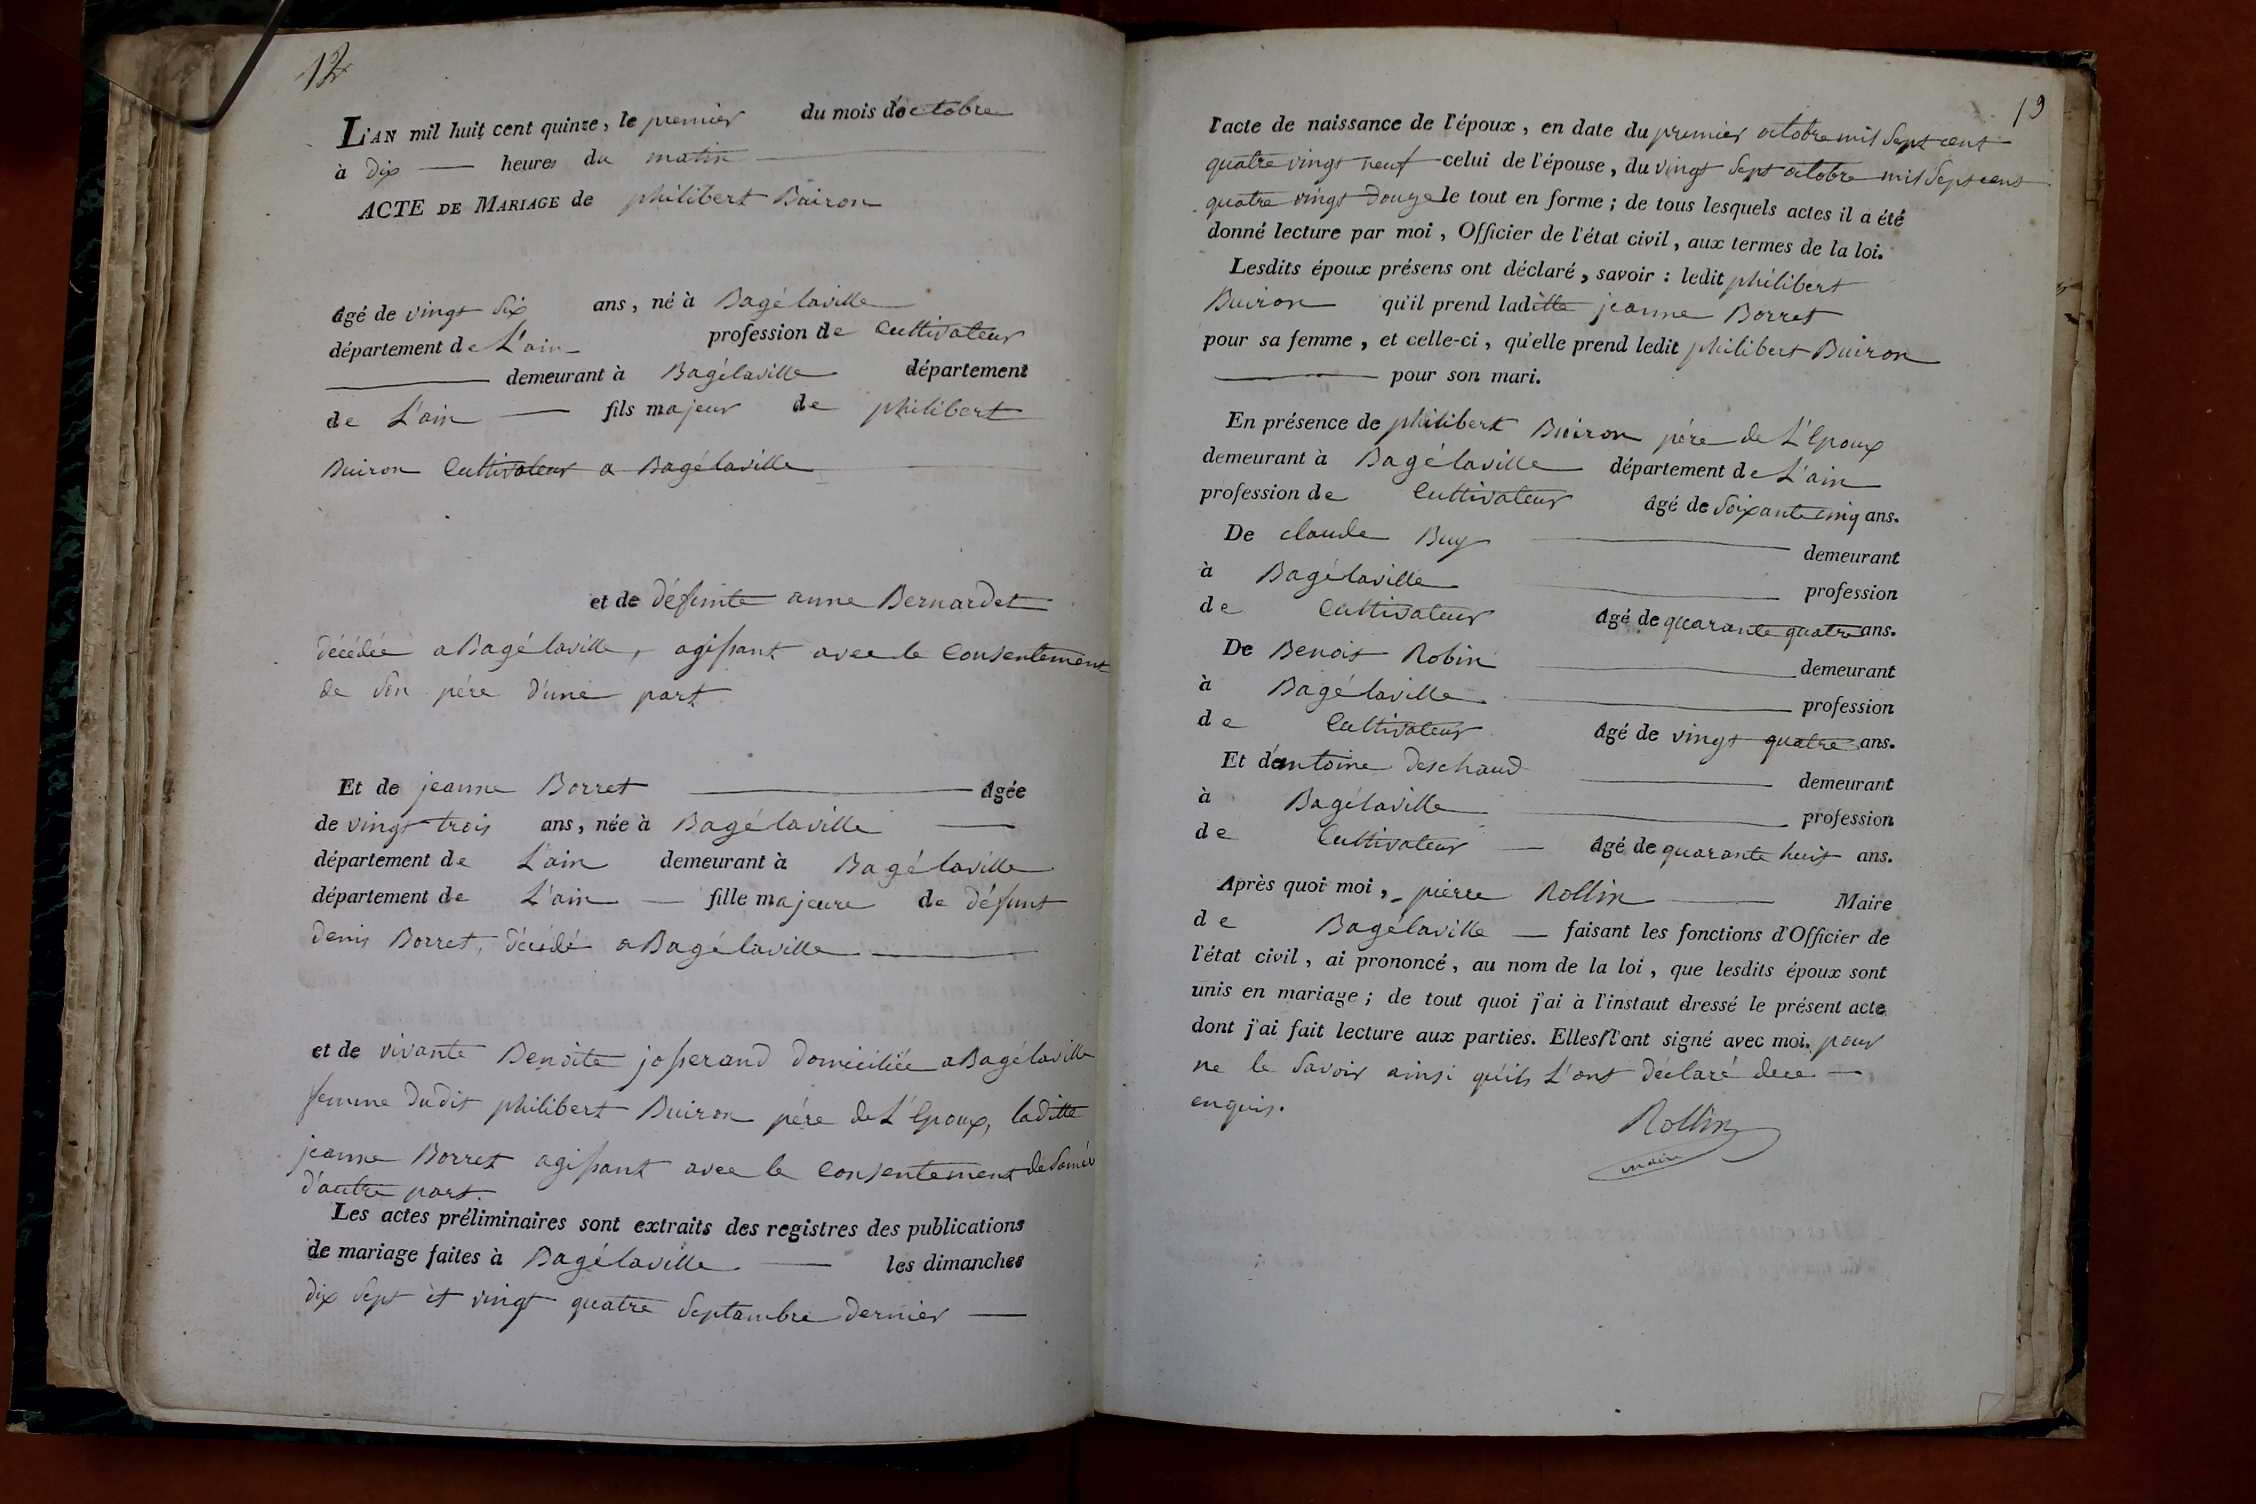 12
L'AN mil huit cent quinze, le premier du mois d'octobre
à dix heures du matin
ACTE DE MARIAGE de philibert Buiron
âgé de vingt six ans, né à Bagélaville
département de L'ain profession de Cultivateur
demeurant à Bagélaville département
de L'ain fils majeur de philibert
Buiron Cultivateur a Bagélaville
et de défunte anne Bernardet
décédée a Bagélaville, agissant avec le Consentement
de son pére d'une part
Et de jeanne Borret âgée
de vingt trois ans, née à Bagélaville
département de L'ain demeurant à Bagélaville
département de L'ain fille majeure de défunt
denis Borret, décédé a Bagélaville
et de vivante Benoite josserand domiciliée a Bagélaville
femme dudit philibert Buiron pére de L'Epoux, laditte
jeanne Borret agissant avec le Consentement de
d'autre part.
Les actes préliminaires sont extraits des registres des publications
de mariage faites à Bagélaville les dimanches
dix sept et vingt quatre Septambre dernier
19
l'acte de naissance de l'époux, en date du premier octobre mil sept cent
quatre vingt neuf celui de l'épouse, du vingt sept octobre mil sept cent
quatre vingt douze le tout en forme; de tous lesquels actes il a été
donné lecture par moi, Officier de l'état civil, aux termes de la loi.
Lesdits époux présens ont déclaré, savoir: ledit philibert
Buiron qu'il prend laditte jeanne Borret
pour sa femme, et celle-ci, qu'elle prend ledit philibert Buiron
pour son mari.
En présence de philibert Buiron pére de L'Epoux
demeurant à Bagélaville département de L'ain
profession de Cultivateur âgé de soixante cinq ans.
De claude Buy demeurant
à Bagélaville profession
de Cultivateur âgé de quarante quatre ans.
De Benoit Robin demeurant
à Bagélaville profession
de Cultivateur âgé de vingt quatre ans.
Et d'antoine deschaud demeurant
à Bagélaville profession
de Cultivateur âgé de quarante huit ans.
Après quoi moi, pierre Rollin Maire
de Bagélaville faisant les fonctions d'Officier de
l'état civil, ai prononcé, au nom de la loi, que lesdits époux sont
unis en mariage; de tout quoi j'ai à l'instaut dressé le présent acte
dont j'ai fait lecture aux parties. Elles n'ont signé avec moi. pour
ne le Savoir ainsi qu'ils L'ont déclaré de ce
enquis.
Rollin
maire